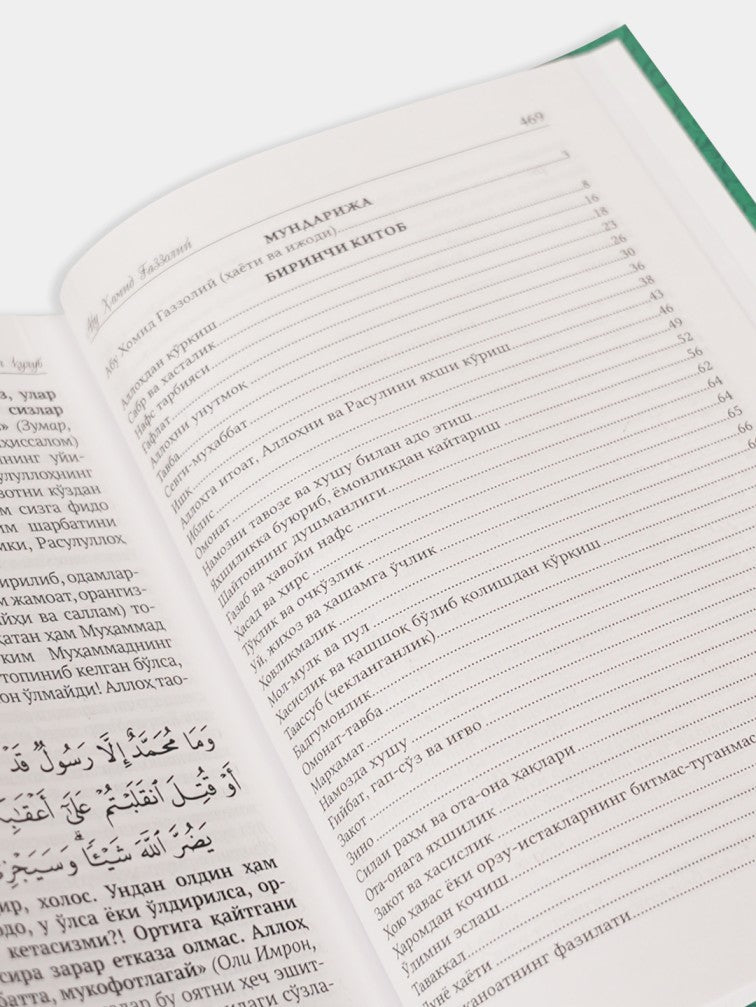 қуруқ
з, улар
сизлар
» (Зумар,
ҳиссалом)
нинг уйи-
улуллоҳнинг
вотни кўздан
м сизга фидо
им шарбатини
мки, Расулуллоҳ
ирилиб, одамлар-
м жамоат, орангиз-
айҳи ва саллам) то-
қатан ҳам Муҳаммад
ким Муҳаммаднинг
топиниб келган бўлса,
он ўлмайди! Аллоҳ тао-
وَمَا مُحَمَّدٌ إِلَّا رَسُولٌ قَدْ
أَوْ قُتِلَ انْقَلَبْتُمْ عَلَىٰ أَعْقَبِكُمْ
يَضُرَّ اللَّهَ شَيْئًا وَسَيَجْزِي
ир, холос. Ундан олдин ҳам
одо, у ўлса ёки ўлдирилса, ор-
кетасизми?! Ортига қайтгани
сира зарар етказа олмас. Аллоҳ
батта, мукофотлагай» (Оли Имрон,
лар бу оятни ҳеч эшит-
идаги сўзла-
Абу Ҳомид Ғаззолий
469
МУНДАРИЖА
Абу Ҳомид Ғаззолий (ҳаёти ва ижоди) 3
БИРИНЧИ КИТОБ
Аллоҳдан кўрқиш 8
Сабр ва хасталик 16
Нафс тарбияси 18
Ғафлат 23
Аллоҳни унутмоқ 26
Тавба 30
Севги-муҳаббат 36
Ишқ 38
Аллоҳга итоат, Аллоҳни ва Расулини яхши кўриш 43
Иблис 46
Омонат 49
Намозни тавозе ва хушу билан адо этиш 52
Яхшиликка буюриб, ёмонликдан қайтариш 56
Шайтоннинг душманлиги 62
Ғазаб ва ҳавойи нафс 64
Ҳасад ва ҳирс 64
Тўқлик ва очкўзлик 65
Уй, жиҳоз ва ҳашамга ўчлик 66
Ҳовлиқмалик
Мол-мулк ва пул
Хасислик ва қашшоқ бўлиб қолишдан кўрқиш
Таассуб (чекланганлик)
Бадгумонлик
Омонат-тавба
Марҳамат
Намозда хушу
Ғийбат, гап-сўз ва иғво
Закот
Зино
Силаи раҳм ва ота-она ҳақлари
Ота-онага яхшилик
Закот ва хасислик
Ҳою ҳавас ёки орзу-истакларнинг битмас-туганмас
Ҳаромдан қочиш
Ўлимни эслаш
Таваккал
Дунё ҳаёти
Қаноатнинг фазилати